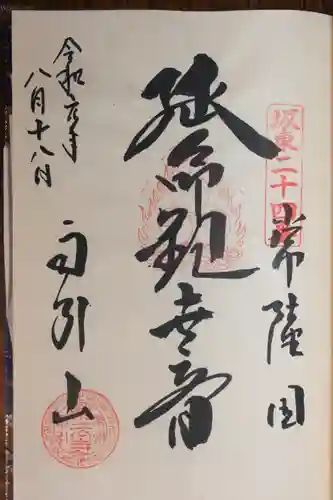 坂東二十四番
常陸国
延命観世音
雨引山
令和元年
八月十八日